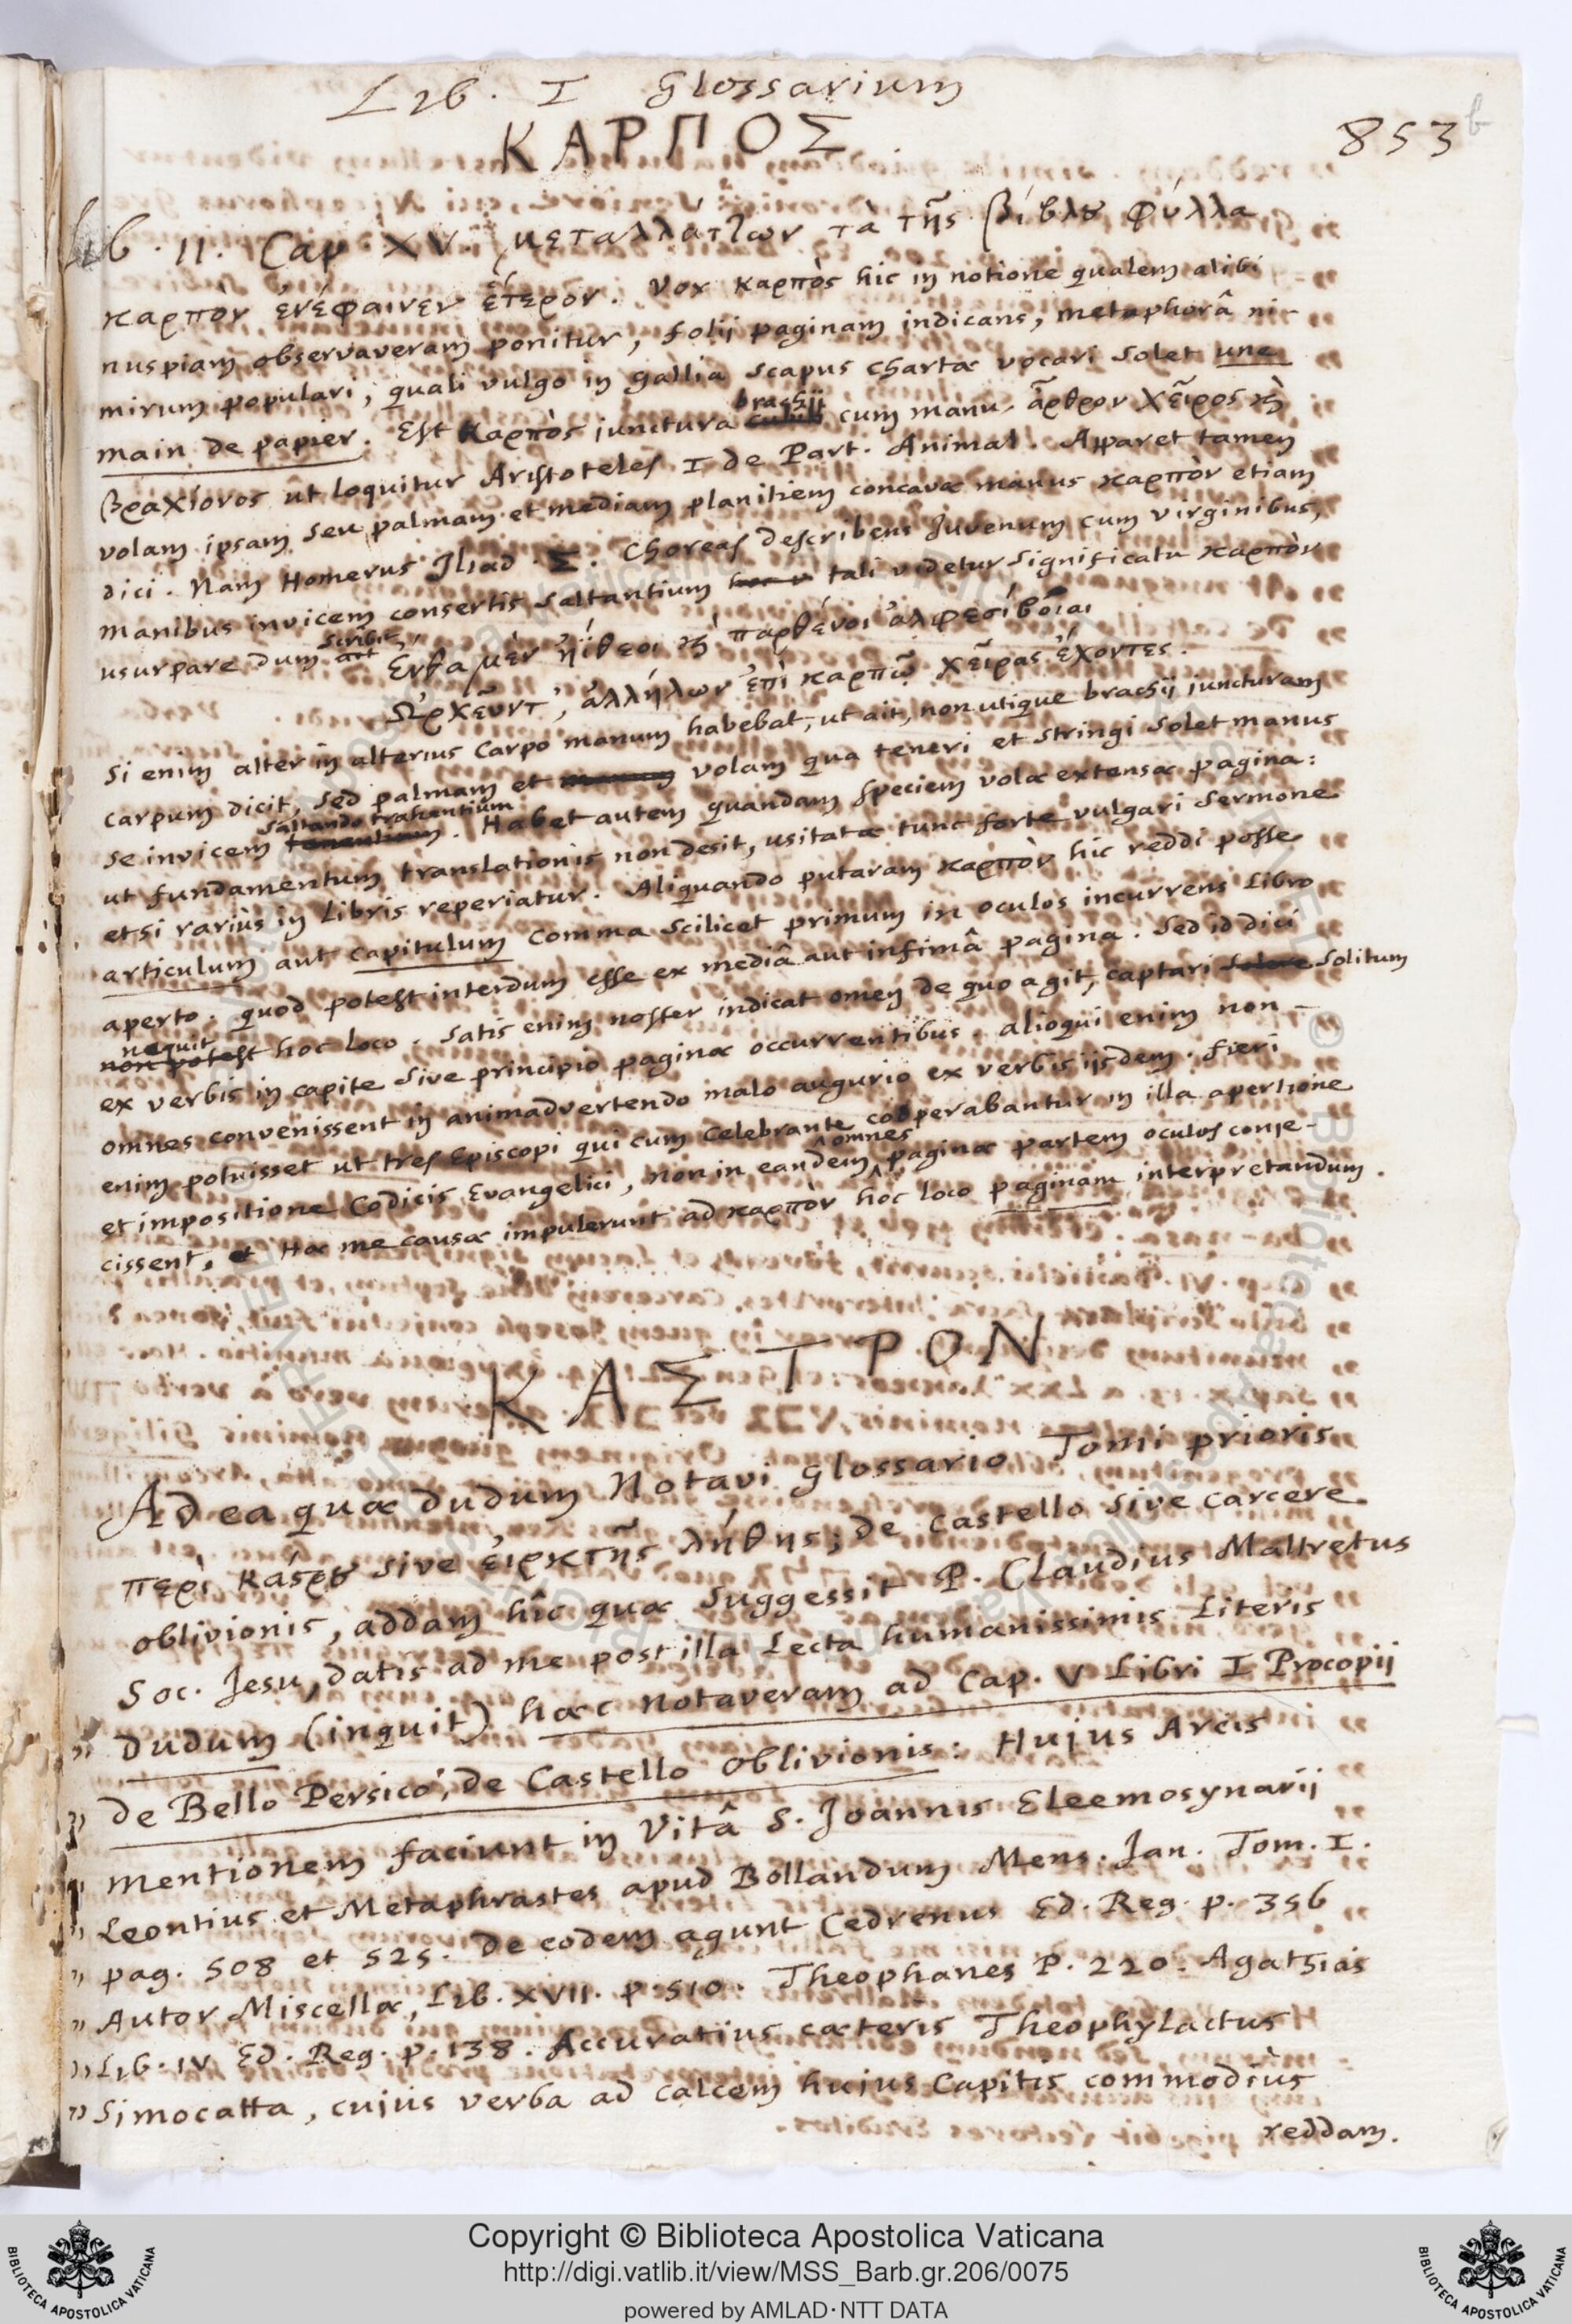 Lib. I Glossarium
ΚΑΡΠΟΣ
853
b
Lib. II. Cap. XV. μεταλλάτlων τὰ τῆς βίβλȣ φύλλα
καρπὸν ἐνέφαινεν ἕτερον. Vox καρπὸς hic in notione qualem alibi
nuspiam observaveram ponitur, folij paginam indicans, metaphorâ ni-
mirum populari, quali vulgo in Gallia scapus chartæ vocari solet une
main de papier. Est καρπὸς iunctura brachij cum manu. ἄρθρον χειρὸς ϗ
βραχίονος ut loquitur Aristoteles I de Part. Animal. Apparet tamen
volam ipsam seu palmam et mediam planitiem concavæ manus καρπὸν etiam
dici. Nam Homerus Iliad. Σ. Choreas describens Juvenum cum virginibus,
manibus invicem consertis saltantium tali videtur significatu καρπὸν
usurpare dum scribit,
Ἔνθα μὲν ἠΐθεοι ϗ παρθένοι ἀλφεσίβοιαι
Ὠρχεῦντ', ἀλλήλων ἐπὶ καρπῷ χεῖρας ἔχοντες.
Si enim alter in alterius Carpo manum habebat, ut ait, non utique brachij iuncturam
carpum dicit, sed palmam et volam qua teneri et stringi solet manus
se invicem saltando trahentium. Habet autem quandam speciem volæ extensæ pagina:
ut fundamentum translationis non desit, usitatæ tunc forte vulgari sermone
etsi rariùs in Libris reperiatur. Aliquando putaram καρπὸν hic reddi posse
articulum aut capitulum comma scilicet primum in oculos incurrens Libro
aperto. quod potest interdum esse ex mediâ aut infimâ pagina. Sed id dici
nequit hoc loco. Satis enim noster indicat omen de quo agit, captari solitum
ex verbis in capite sive principio paginæ occurrentibus. alioqui enim non
omnes convenissent in animadvertendo malo augurio ex verbis iisdem. fieri
enim potuisset ut tres Episcopi qui cum celebrante cooperabantur in illa apertione
et impositione Codicis Evangelici, non in eandem omnes paginæ partem oculos conje-
cissent. Hæ me causæ impulerunt ad καρπὸν hoc loco paginam interpretandum.
ΚΑΣΤΡΟΝ
Ad ea quæ dudum Notavi Glossario Tomi prioris
περὶ κάςρȣ sive εἱρκτῆς λήθης; de castello sive carcere
oblivionis, addam hîc quæ suggessit P. Claudius Maltretus
Soc. Jesu, datis ad me post illa Lecta humanissimis Literis
„ Dudum (inquit) hæc notaveram ad Cap. V Libri I Procopij
„ de Bello Persico, de Castello Oblivionis: Hujus Arcis
„ mentionem faciunt in Vitâ S. Joannis Eleemosynarij
„ Leontius et Metaphrastes apud Bollandum Mens. Jan. Tom. I.
„ pag. 508 et 525. de eodem agunt Cedrenus Ed. Reg. p. 356
„ Autor Miscellæ, Lib. XVII. p. 510. Theophanes P. 220. Agathias
„ Lib. IV Ed. Reg. p. 138. Accuratius cæteris Theophylactus
„ Simocatta, cujus verba ad calcem hujus Capitis commodiùs
reddam.
Copyright © Biblioteca Apostolica Vaticana
http://digi.vatlib.it/view/MSS_Barb.gr.206/0075
powered by AMLAD·NTT DATA
BIBLIOTECA APOSTOLICA VATICANA
BIBLIOTECA APOSTOLICA VATICANA